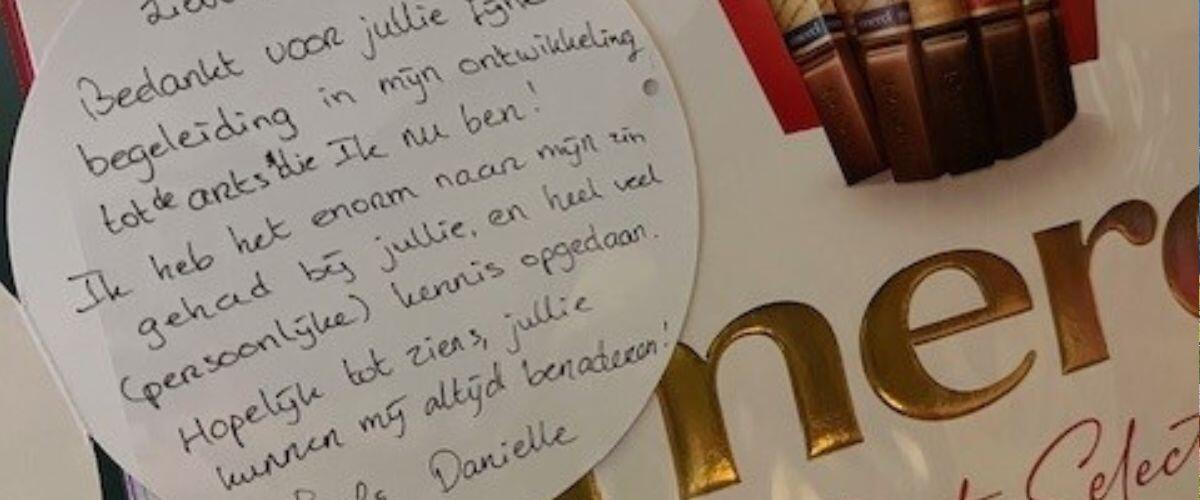 Bedankt voor jullie fijne
begeleiding in mijn ontwikkeling
tot de arts die Ik nu ben!
Ik heb het enorm naar mijn zin
gehad bij jullie, en heel veel
(persoonlijke) kennis opgedaan.
Hopelijk tot ziens, jullie
kunnen mij altijd benaderen!
Danielle
merci
merc
Select